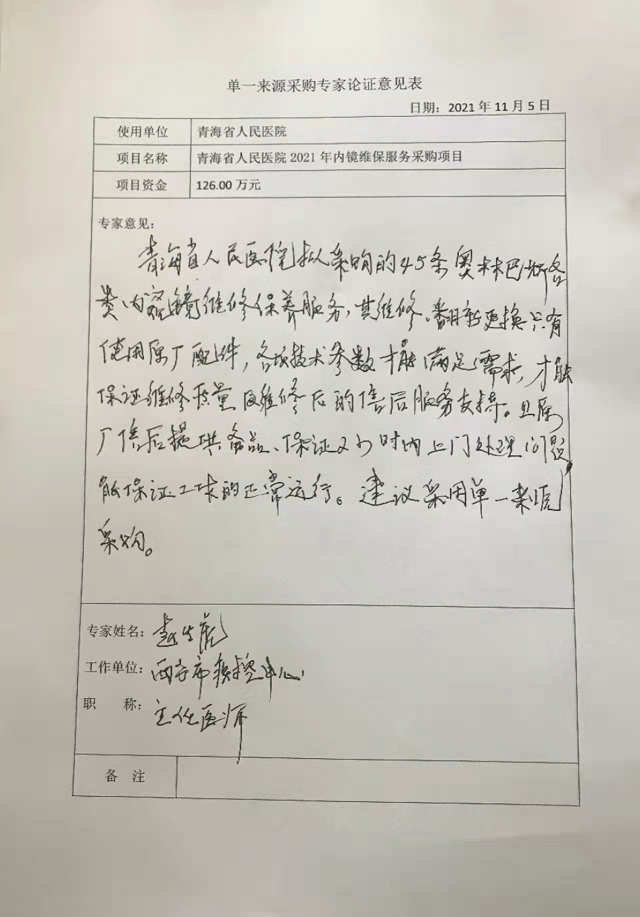 单一来源采购专家论证意见表
日期：2021 年 11 月 5 日
使用单位 青海省人民医院
项目名称 青海省人民医院 2021 年内镜维保服务采购项目
项目资金 126.00 万元
专家意见：
青海省人民医院拟采购的45条奥林巴斯各
类内窥镜维修保养服务，其维修、翻新更换只有
使用原厂配件，各项技术参数才能满足需求，才能
保证维修质量及维修后的售后服务支持。且原
厂售后提供备品、保证24小时内上门处理问题，
能保证工作的正常运行。建议采用单一来源
采购。
专家姓名：赵
工作单位：西宁市疾控中心
职 称：主任医师
备 注